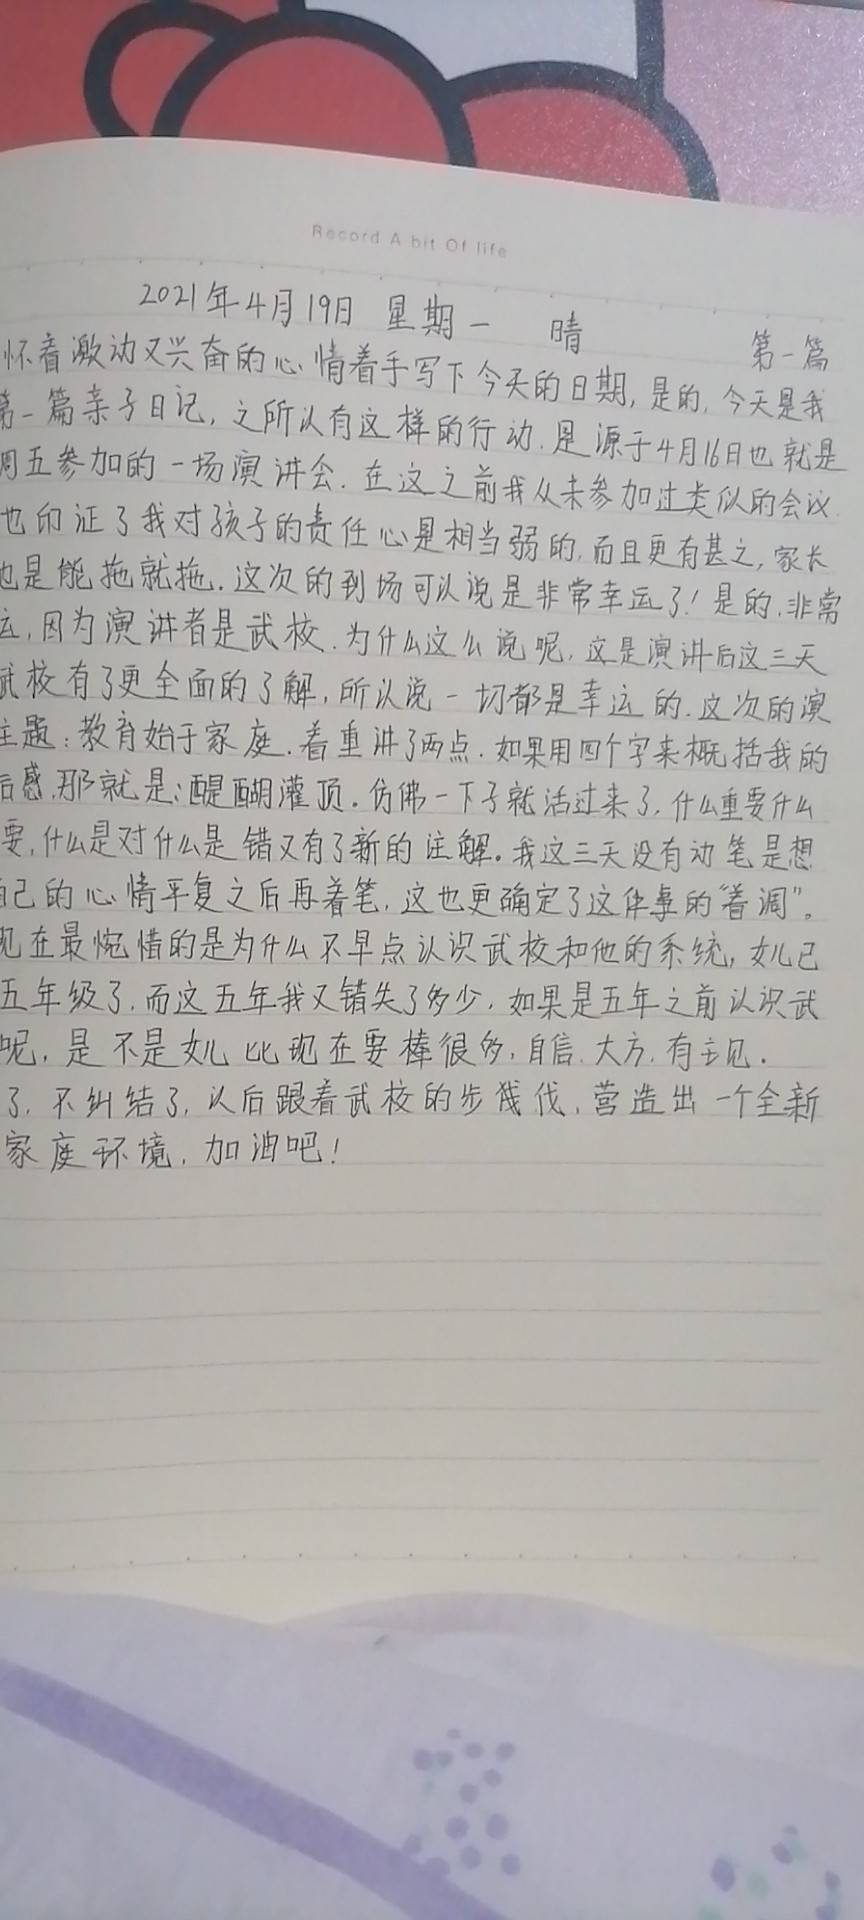 Record A bit Of life
2021年4月19日 星期一 晴
第一篇
怀着激动又兴奋的心情着手写下今天的日期,是的,今天是我
第一篇亲子日记,之所以有这样的行动.是源于4月16日也就是
周五参加的一场演讲会.在这之前我从未参加过类似的会议
也印证了我对孩子的责任心是相当弱的,而且更有甚之,家长
也是能拖就拖.这次的到场可以说是非常幸运了!是的,非常
运,因为演讲者是武校.为什么这么说呢,这是演讲后这三天
武校有了更全面的了解,所以说一切都是幸运的.这次的演
主题:教育始于家庭.着重讲了两点.如果用四个字来概括我的
后感,那就是:醍醐灌顶。仿佛一下子就活过来了,什么重要什么
要,什么是对什么是错又有了新的注解。我这三天没有动笔是想
自己的心情平复之后再着笔,这也更确定了这件事的“着调”。
现在最惋惜的是为什么不早点认识武校和他的系统,女儿已
五年级了,而这五年我又错失了多少,如果是五年之前认识武
呢,是不是女儿比现在要棒很多,自信.大方.有主见.
了,不纠结了,以后跟着武校的步伐,营造出一个全新
家庭环境,加油吧!